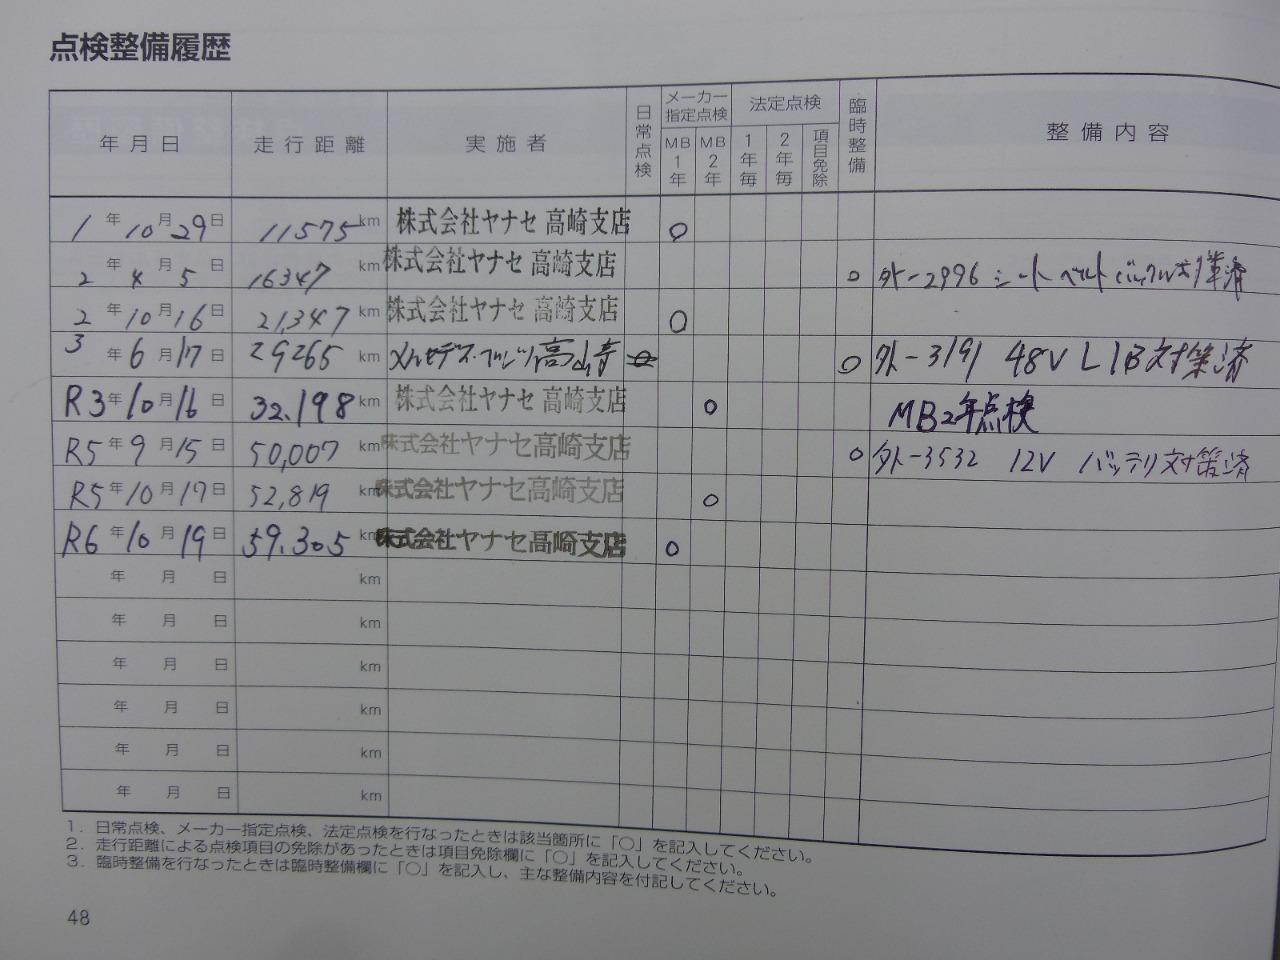 点検整備履歴
年月日 走行距離 実施者 日常点検 メーカー指定点検 MB1年 MB2年 法定点検 1年毎 2年毎 項目免除 臨時整備 整備内容
1年10月29日 11575km 株式会社ヤナセ 高崎支店 ○
2年4月5日 16347km 株式会社ヤナセ 高崎支店 ○ 外-2996 シートベルトバックル対策済
2年10月16日 21,347km 株式会社ヤナセ 高崎支店 ○
3年6月17日 29265km メルセデス・ベンツ高崎 ○ 外-3191 48V LIB対策済
R3年10月16日 32.198km 株式会社ヤナセ 高崎支店 ○ MB2年点検
R5年9月15日 50,007km 株式会社ヤナセ高崎支店 ○ 外-3532 12V バッテリ対策済
R5年10月17日 52,819km 株式会社ヤナセ高崎支店 ○
R6年10月19日 59.305km 株式会社ヤナセ高崎支店 ○
年 月 日 km
年 月 日 km
年 月 日 km
年 月 日 km
年 月 日 km
年 月 日 km
1．日常点検、メーカー指定点検、法定点検を行なったときは該当箇所に「○」を記入してください。
2．走行距離による点検項目の免除があったときは項目免除欄に「○」を記入してください。
3．臨時整備を行なったときは臨時整備欄に「○」を記入し、主な整備内容を付記してください。
48